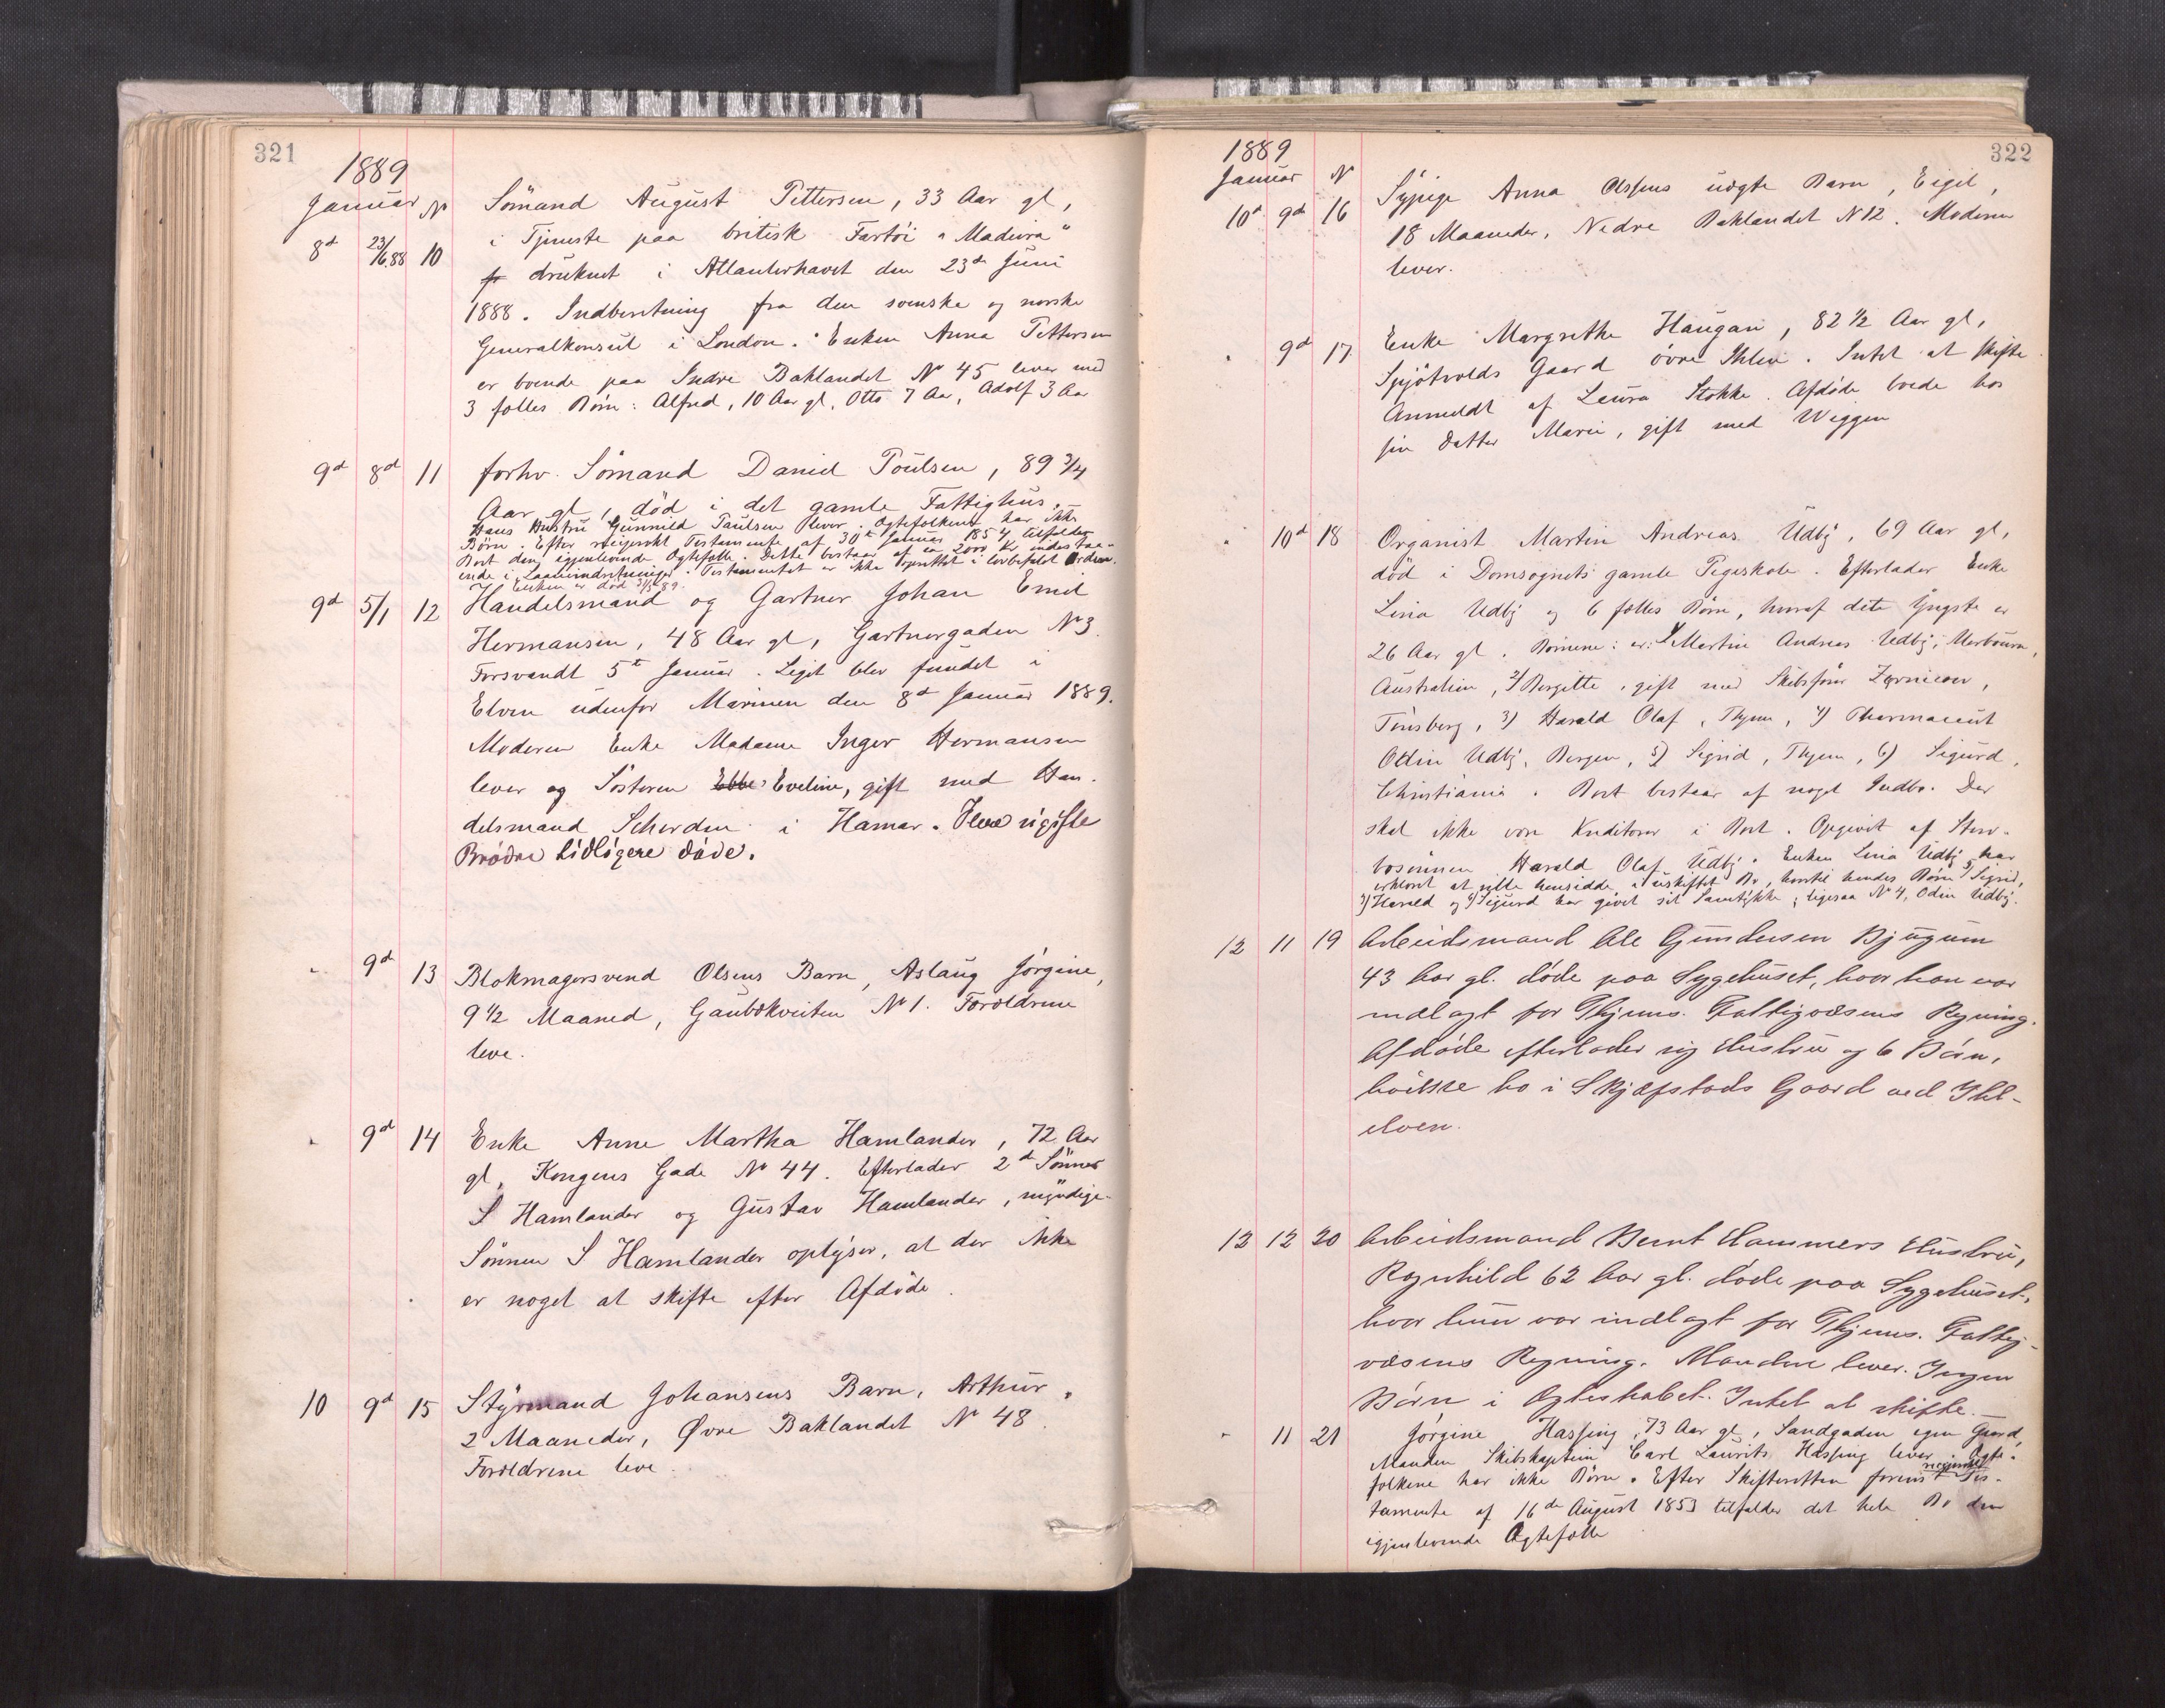 321
1889
Januar No
8de 23/6.88 10 Sömand August Pettersen, 33 Aar gl,
i Tjeneste paa britisk Fartöi "Madeira"
druknet i Atlanterhavet den 23de Juni
1888. Indberetning fra den svenske og norske
Generalkonsul i London. Enken Anna Pettersen
er boende paa Indre Baklandet No 45 lever med
3 fælles Börn: Alfred, 10 Aar gl, Otto 7 Aar, Adolf 3 Aar
9d 8d 11 forhv. Sömand Daniel Poulsen, 89 3/4
Aar gl, död i det gamle Fattighus.
Hans Hustru Gunnild Paulsen lever. Ægtefolkene har ikke
Börn. Efter reciprokt Testamente af 30te Januar 1854 tilfalder
Boet den igjenlevende Ægtefælle. Dette bestaar af ca 2000 Kr indestaa-
ende i Laaneindretninger. Testamentet er ikke oprettet i lovbefalet Orden.
Enken er död 3/5 89.
9d 5/1 12 Handelsmand og Gartner Johan Emil
Hermansen, 48 Aar gl, Gartnergaden No 3.
Forsvandt 5te Januar. Liget blev fundet i
Elven udenfor Marinen den 8de Januar 1889.
Moderen Enke Madame Inger Hermansen
lever og Söstern Ebbe Eveline, gift med Han-
delsmand Scherdin i Hamar. Flere ugifte
Brödre tidligere döde.
" 9d 13 Blokmagersvend Olsens Barn, Aslaug Jörgine,
9 1/2 Maaned, Gaubækveiten No 1. Forældrene
leve.
" 9d 14 Enke Anne Martha Hamlander, 72 Aar
gl, Kongens Gade No 44. Efterlader 2de Sönner
S Hamlander og Gustav Hamlander, myndige.
Sönnen S Hamlander oplyser, at der ikke
er noget at skifte efter Afdöde.
10 9d 15 Styrmand Johansens Barn, Arthur,
2 Maaneder, Øvre Baklandet No 48.
Forældrene leve.
322
1889
Januar N
10d 9d 16 Sypige Anna Olssens uægte Barn, Eigil,
18 Maaneder, Nedre Baklandet N 12. Moderen
lever.
" 9d 17 Enke Margrethe Haugan, 82 1/2 Aar gl,
Spjötvolds Gaard övre Ihlen. Intet at skifte.
Anmeldt af Laura Stokke. Afdöde boede hos
sin Datter Marie, gift med Wiggen
" 10d 18 Organist Martin Andreas Udbÿ, 69 Aar gl,
död i Domsognets gamle Pigeskole. Efterlader Enke
Lina Udbÿ og 6 fælles Börn, hvoraf dete yngste er
26 Aar gl. Börnene: er: 1/ Martin Andreas Udbÿ, Merbourn,
Australien, 2/ Bergitte, gift med Skibsförer
Tönsberg, 3) Harald Olaf, Thjem, 4) Pharmaceut
Ottin Udbÿ, Bergen, 5) Sigrid, Thjem, 6) Sigurd,
Christiania. Boet bestaar af noget Indbo. Der
skal ikke være Kreditorer i Boet. Opgivet af Sterv-
bosönnen Harald Olaf Udbÿ. Enken Lina Udbÿ har
erklæret at ville hensidde i uskiftet Bo, hvortil hendes Börn 5) Sigrid,
3) Harald og 6) Sigurd har givet sit Samtykke; ligesaa No 4, Odin Udbÿ.
12 11 19 Arbeidsmand Ole Gundersen Bjugum
43 Aar gl. döde paa Sygehuset, hvor han var
indlagt for Thjems. Fattigvæsens Regning.
Afdöde efterlader sig Hustru og 6 Börn,
hvilke bo i Skjefstads Gaard ved Ihl-
elven.
12 12 20 Arbeidsmand Bernt Hammers Hustru,
Ragnhild 62 Aar gl. döde paa Sygehuset,
hvor hun var indlagt for Thjems. Fattig-
væsens Regning. Manden lever. Ingen
Börn i Ægteskabet. Intet at skifte.
" 11 21 Jörgine Hassing, 73 Aar gl, Sandgaden egen Gaard,
Manden Skibskaptein Carl Laurits Hassing lever. Ægte-
folkene har ikke Börn. Efter Skifteretten forevist reciprokt Tes-
tamente af 16de August 1853 tilfalder det hele Bo den
igjenlevende Ægtefælle